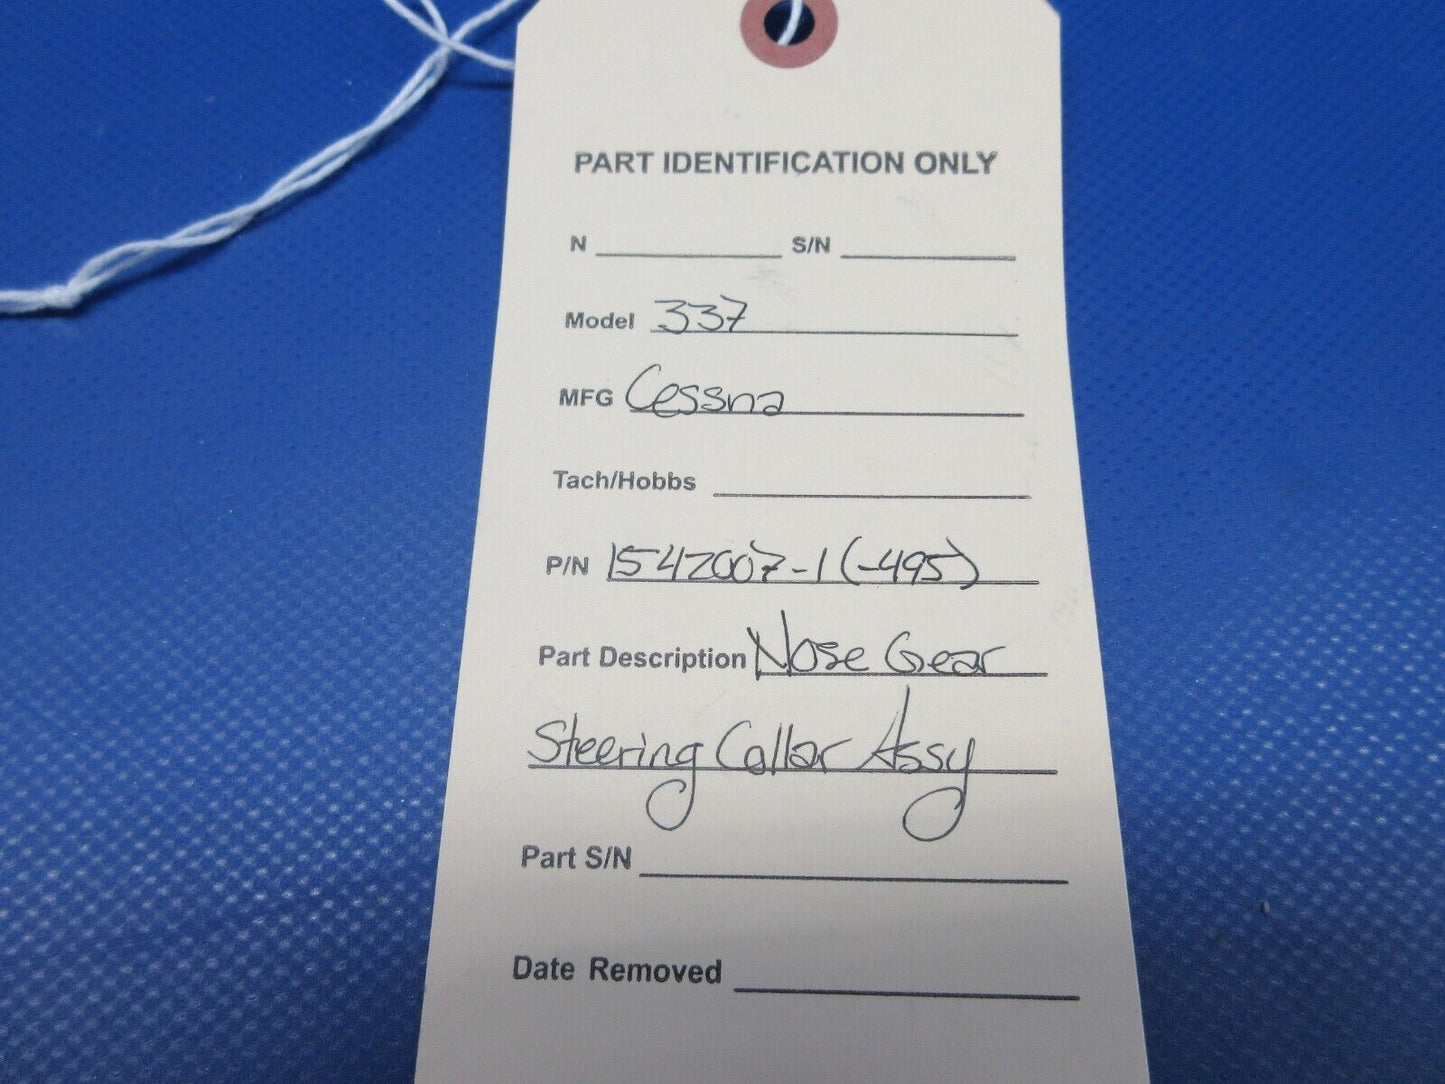 PART IDENTIFICATION ONLY
N S/N
Model 337
MFG Cessna
Tach/Hobbs
P/N 1542007-1 (-495)
Part Description Nose Gear
Steering Collar Assy
Part S/N
Date Removed